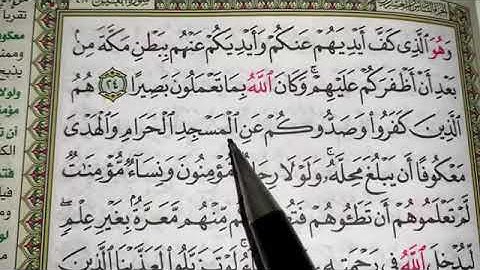 وَهُوَ ٱلَّذِى كَفَّ أَيْدِيَهُمْ عَنكُمْ وَأَيْدِيَكُمْ عَنْهُم بِبَطْنِ مَكَّةَ مِنۢ
بَعْدِ أَنْ أَظْفَرَكُمْ عَلَيْهِمْ ۚ وَكَانَ ٱللَّهُ بِمَا تَعْمَلُونَ بَصِيرًا ﴿٢٤﴾ هُمُ
ٱلَّذِينَ كَفَرُوا۟ وَصَدُّوكُمْ عَنِ ٱلْمَسْجِدِ ٱلْحَرَامِ وَٱلْهَدْىَ
مَعْكُوفًا أَن يَبْلُغَ مَحِلَّهُۥ ۚ وَلَوْلَا رِجَالٌ مُّؤْمِنُونَ وَنِسَآءٌ مُّؤْمِنَـٰتٌ
لَّمْ تَعْلَمُوهُمْ أَن تَطَـُٔوهُمْ مِّنْهُم مَّعَرَّةٌۢ بِغَيْرِ عِلْمٍ ۖ
لِّيُدْخِلَ ٱللَّهُ فِى رَحْمَتِهِۦ لَوْ تَزَيَّلُوا۟ لَعَذَّبْنَا ٱلَّذِينَ